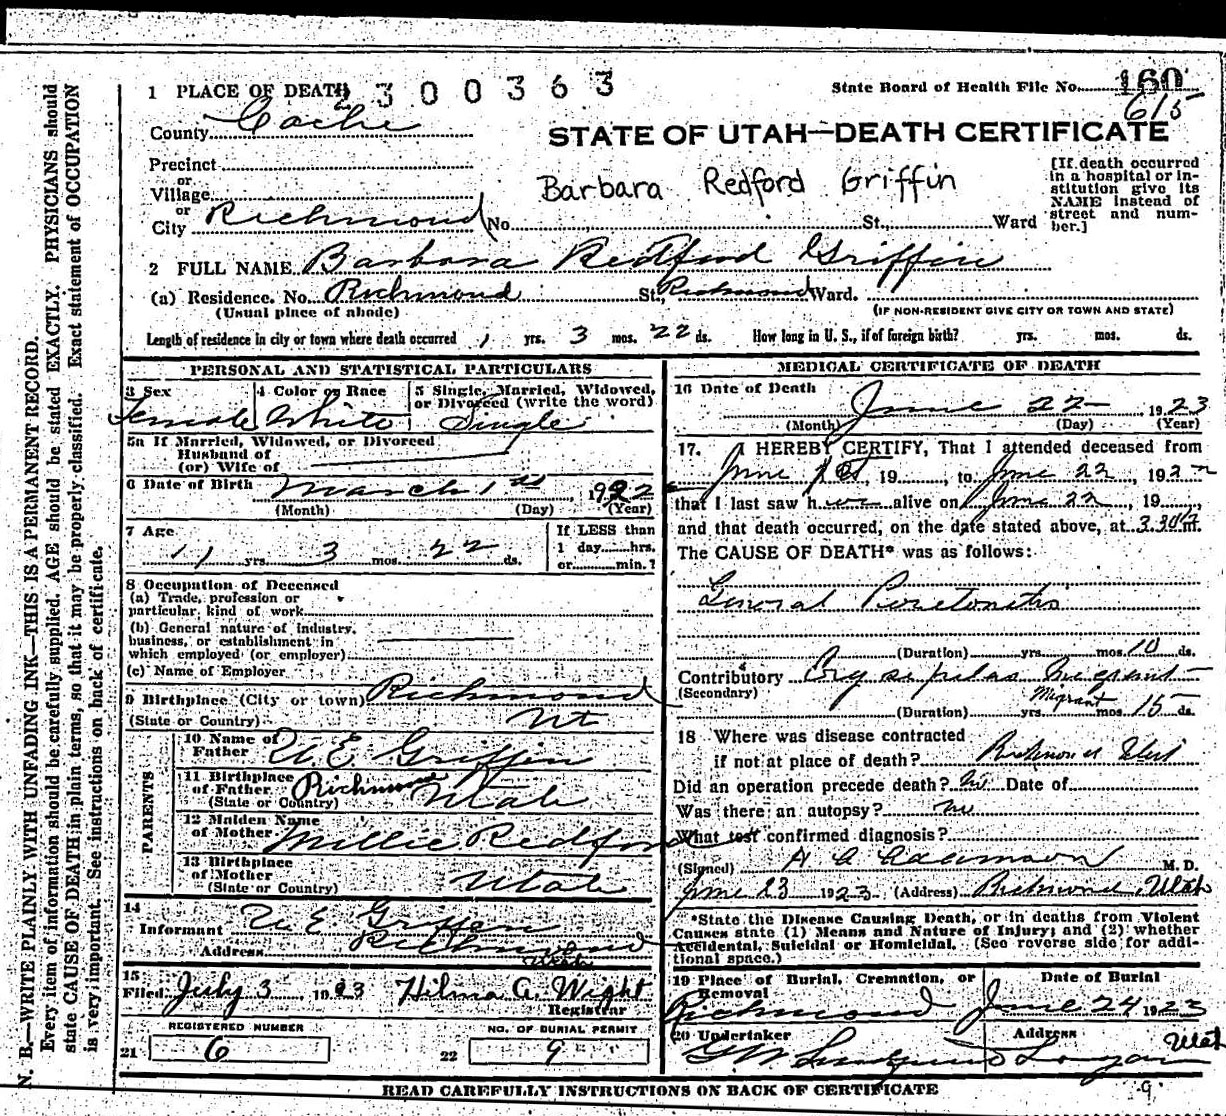 N. B.—WRITE PLAINLY WITH UNFADING INK—THIS IS A PERMANENT RECORD.
Every item of information should be carefully supplied. AGE should be stated EXACTLY. PHYSICIANS should
state CAUSE OF DEATH in plain terms, so that it may be properly classified. Exact statement of OCCUPATION
is very important. See instructions on back of certificate.
1 PLACE OF DEATH 2300363
State Board of Health File No. 160
615
County Cache
STATE OF UTAH—DEATH CERTIFICATE
Precinct
or
Village
Barbara Redford Griffin
[If death occurred in a hospital or institution give its NAME instead of street and number.]
or
City Richmond (No. St., Ward
2 FULL NAME Barbara Redford Griffin
(a) Residence. No. Richmond St., Richmond Ward.
(Usual place of abode) (IF NON-RESIDENT GIVE CITY OR TOWN AND STATE)
Length of residence in city or town where death occurred 1 yrs. 3 mos. 22 ds. How long in U. S., if of foreign birth? yrs. mos. ds.
PERSONAL AND STATISTICAL PARTICULARS
3 Sex 4 Color or Race 5 Single, Married, Widowed,
or Divorced (write the word)
Female White Single
5a If Married, Widowed, or Divorced
Husband of
(or) Wife of
6 Date of Birth March 1st, 1922
(Month) (Day) (Year)
7 Age If LESS than
1 day......hrs.
yrs. 3 mos. 22 ds. or......min.?
8 Occupation of Deceased
(a) Trade, profession or
particular kind of work
(b) General nature of industry,
business, or establishment in
which employed (or employer)
(c) Name of Employer
9 Birthplace (City or town) Richmond
(State or Country) Ut
PARENTS
10 Name of
Father Griffin
11 Birthplace
of Father Richmond Utah
(State or Country)
12 Maiden Name
of Mother Millie Redford
13 Birthplace
of Mother
(State or Country) Utah
14
Informant Griffin
Address Richmond
Utah
15
Filed July 3, 1923 Hilma A. Wight
Registrar
REGISTERED NUMBER NO. OF BURIAL PERMIT
21 6 22 9
MEDICAL CERTIFICATE OF DEATH
16 Date of Death
June 22, 1923
(Month) (Day) (Year)
17. I HEREBY CERTIFY, That I attended deceased from
June 1st, 19......, to June 22, 192
that I last saw h alive on June 22, 19......,
and that death occurred, on the date stated above, at 3.30 m.
The CAUSE OF DEATH* was as follows:
General Peretonetis
(Duration) yrs. mos. 10 ds.
Contributory
(Secondary) Migrant
(Duration) yrs. mos. 15 ds.
18 Where was disease contracted
if not at place of death? Richmond
Did an operation precede death? no Date of
Was there an autopsy? no
What test confirmed diagnosis?
(Signed) Adamson M. D.
June 23 1923 (Address) Richmond, Utah
*State the Disease Causing Death, or in deaths from Violent
Causes state (1) Means and Nature of Injury; and (2) whether
Accidental, Suicidal or Homicidal. (See reverse side for addi-
tional space.)
19 Place of Burial, Cremation, or Date of Burial
Removal
Richmond June 24 1923
20 Undertaker Address Utah
Logan
READ CAREFULLY INSTRUCTIONS ON BACK OF CERTIFICATE
9